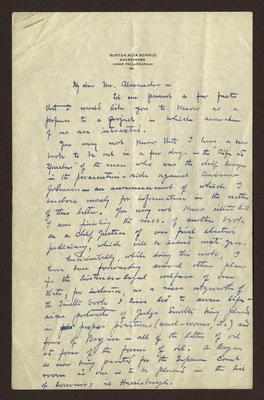 BURTON ALVA KONKLE
SWARTHMORE
(NEAR PHILADELPHIA)
PA.
My dear Mr. Alexander —
Let me present a few facts
that I would like you to know as a
preface to a project in which
of us are interested.
You may not know that I have a new
book to be out in a few days — the "Life &
Speeches" of the man who was the chief lawyer
in the prosecution side against Andrew
Johnson — an announcement of which I
enclose merely for information in the matter
of this letter. You may not know either that I
am finishing the mss. of another book,
on a Chief Justice of our first elective
judiciary, which will be issued next year.
Incidentally, while doing this work, I
have been forwarding several other plans
for the historical welfare of our
state, for instance, as a mere outgrowth of
the Smith book I have led to seven life-
size portraits of Judge Smith being placed
in proper positions (court-rooms, etc.) and
four of Bryan — all of the latter of oil
of the former of oil. A Bryan
is now being painted for the Supreme Court
room & one is to be placed in the hall
of Governors at Harrisburgh.